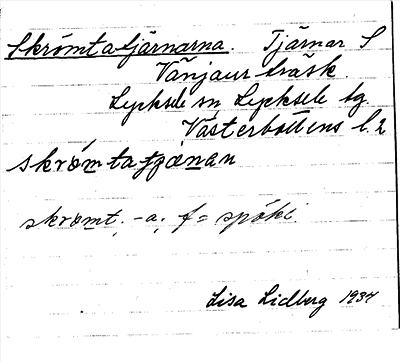 Skrömtatjärnarna. Tjärnar S
Vänjaurträsk.
Lycksele sn Lycksele tg.
Västerbottens l. 2
skrömtatjænan
skrømt. -a. f = spöke.
Lisa Lidberg 1934